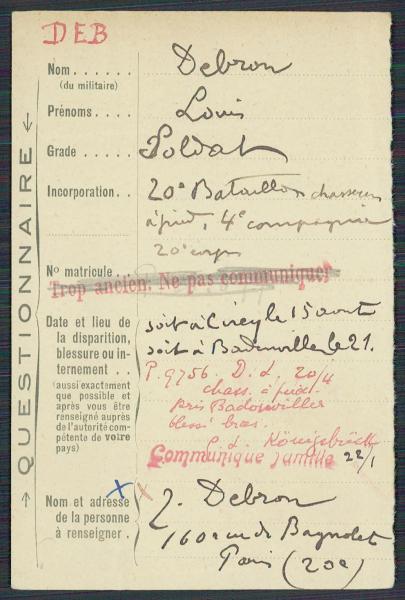 DEB
Nom . . . . . . Debron
(du militaire)
Prénoms . . . . Louis
Grade . . . . . Soldat
Incorporation . . 20e Bataillon chasseurs
à pied, 4e compagnie
20e corps
No matricule .
Trop ancien. Ne pas communiquer
Date et lieu de soit à Cirey le 15 aout
la disparition, soit à Badonviller le 21.
blessure ou in-
ternement . . P. 9756. D. L. 20/4
(aussi exactement chass. à pied
que possible et
après vous être pris Badonviller
renseigné auprès blessé bras.
de l'autorité com-
pétente de votre Königsbrück
pays) Communiqué famille 22/1
Nom et adresse J. Debron
de la personne 160 rue de Bagnolet
à renseigner. Paris (20e)
← QUESTIONNAIRE →